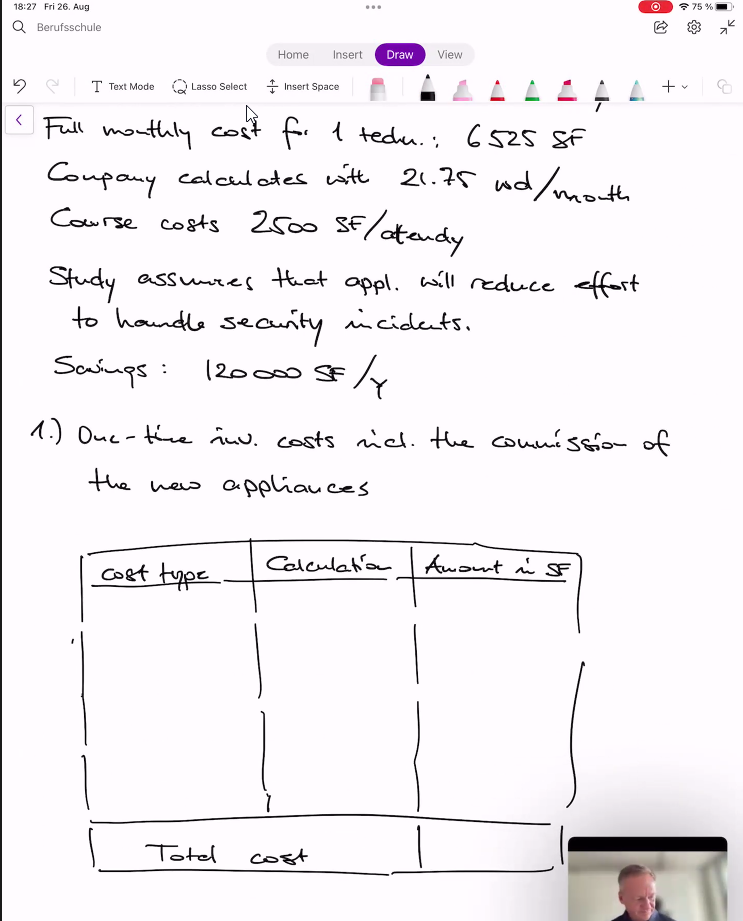 18:27 Fri 26. Aug
75 %
Berufsschule
Home Insert Draw View
Text Mode Lasso Select Insert Space
Full monthly cost for 1 techn.: 6525 SF
Company calculates with 21.75 wd/month
Course costs 2500 SF/atendy
Study assumes that appl. will reduce effort
to handle security incidents.
Savings: 120000 SF/Y
1.) One-time inv. costs incl. the commission of
the new appliances
Cost type Calculation Amount in SF
Total cost